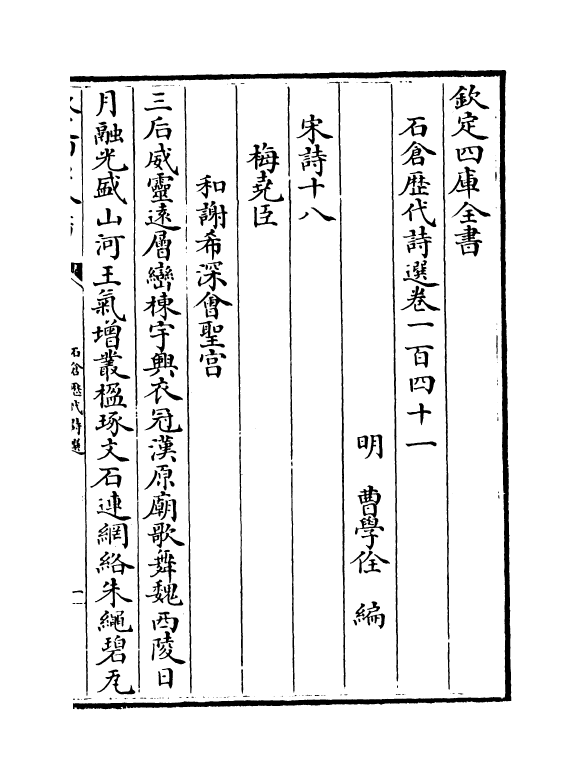 欽定四庫全書
石倉歴代詩選卷一百四十一
明 曹學佺 編
宋詩十八
梅堯臣
和謝希深會聖宫
三后威靈逺層巒棟宇興衣冠漢原廟歌舞魏西陵日
月融光盛山河王氣増叢楹琢文石連網絡朱繩碧瓦
石倉歴代詩選
一